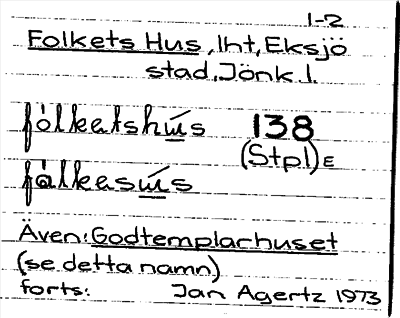 1-2
Folkets Hus, lht, Eksjö
stad, Jönk. l.
fòlketshús 138
(Stpl) E
fòlkesús
Även: Godtemplarhuset
(se detta namn)
forts: Jan Agertz 1973